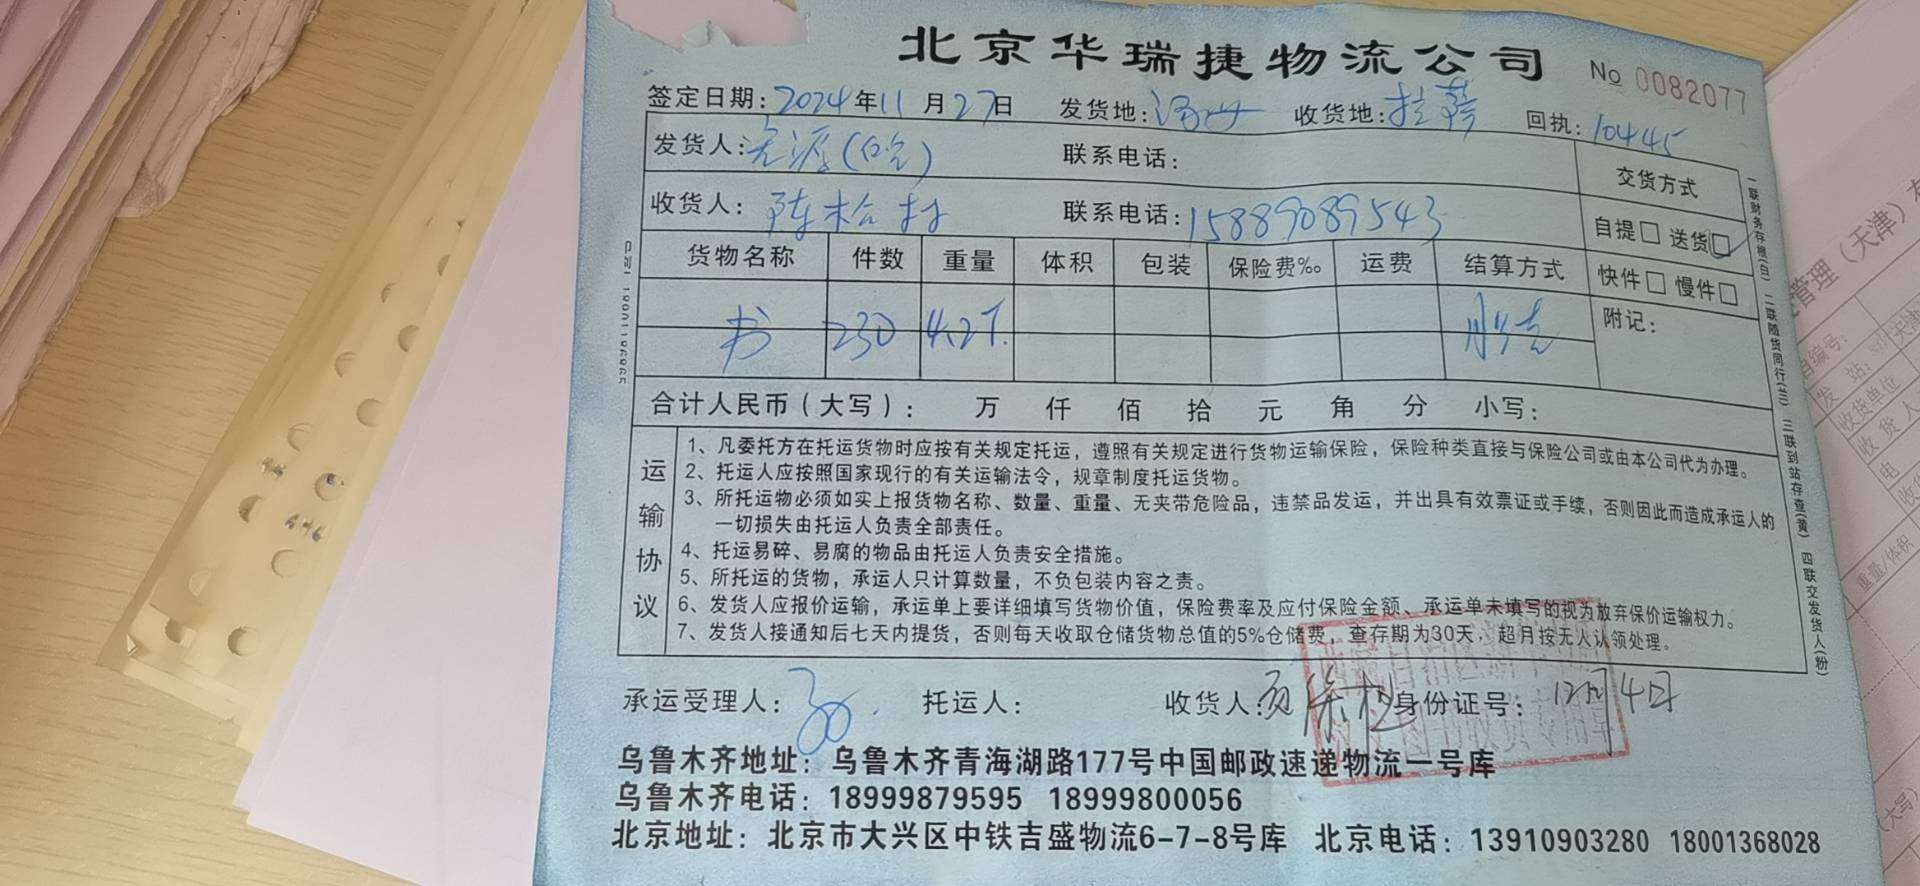 北京华瑞捷物流公司
No 0082077
签定日期：2024年11月27日 发货地： 收货地：拉萨 回执：10445
发货人： 联系电话：
收货人：陈松村 联系电话：15889089543
交货方式
自提□ 送货□
快件□ 慢件□
货物名称 件数 重量 体积 包装 保险费‰ 运费 结算方式
附记：
书 230 4.2T.
合计人民币（大写）： 万 仟 佰 拾 元 角 分 小写：
运输协议
1、凡委托方在托运货物时应按有关规定托运，遵照有关规定进行货物运输保险，保险种类直接与保险公司或由本公司代为办理。
2、托运人应按照国家现行的有关运输法令，规章制度托运货物。
3、所托运物必须如实上报货物名称、数量、重量、无夹带危险品，违禁品发运，并出具有效票证或手续，否则因此而造成承运人的
一切损失由托运人负责全部责任。
4、托运易碎、易腐的物品由托运人负责安全措施。
5、所托运的货物，承运人只计算数量，不负包装内容之责。
6、发货人应报价运输，承运单上要详细填写货物价值，保险费率及应付保险金额、承运单未填写的视为放弃保价运输权力。
7、发货人接通知后七天内提货，否则每天收取仓储货物总值的5%仓储费，查存期为30天，超月按无人认领处理。
承运受理人： 托运人： 收货人： 身份证号：12月4日
乌鲁木齐地址：乌鲁木齐青海湖路177号中国邮政速递物流一号库
乌鲁木齐电话：18999879595 18999800056
北京地址：北京市大兴区中铁吉盛物流6-7-8号库 北京电话：13910903280 18001368028
一联财务存根(白) 二联随货同行(兰) 三联到站存查(黄) 四联交发货人(粉)
管理（天津）
编号：
发 站：
收货单位
收货人
电
重量/体积
（大写）